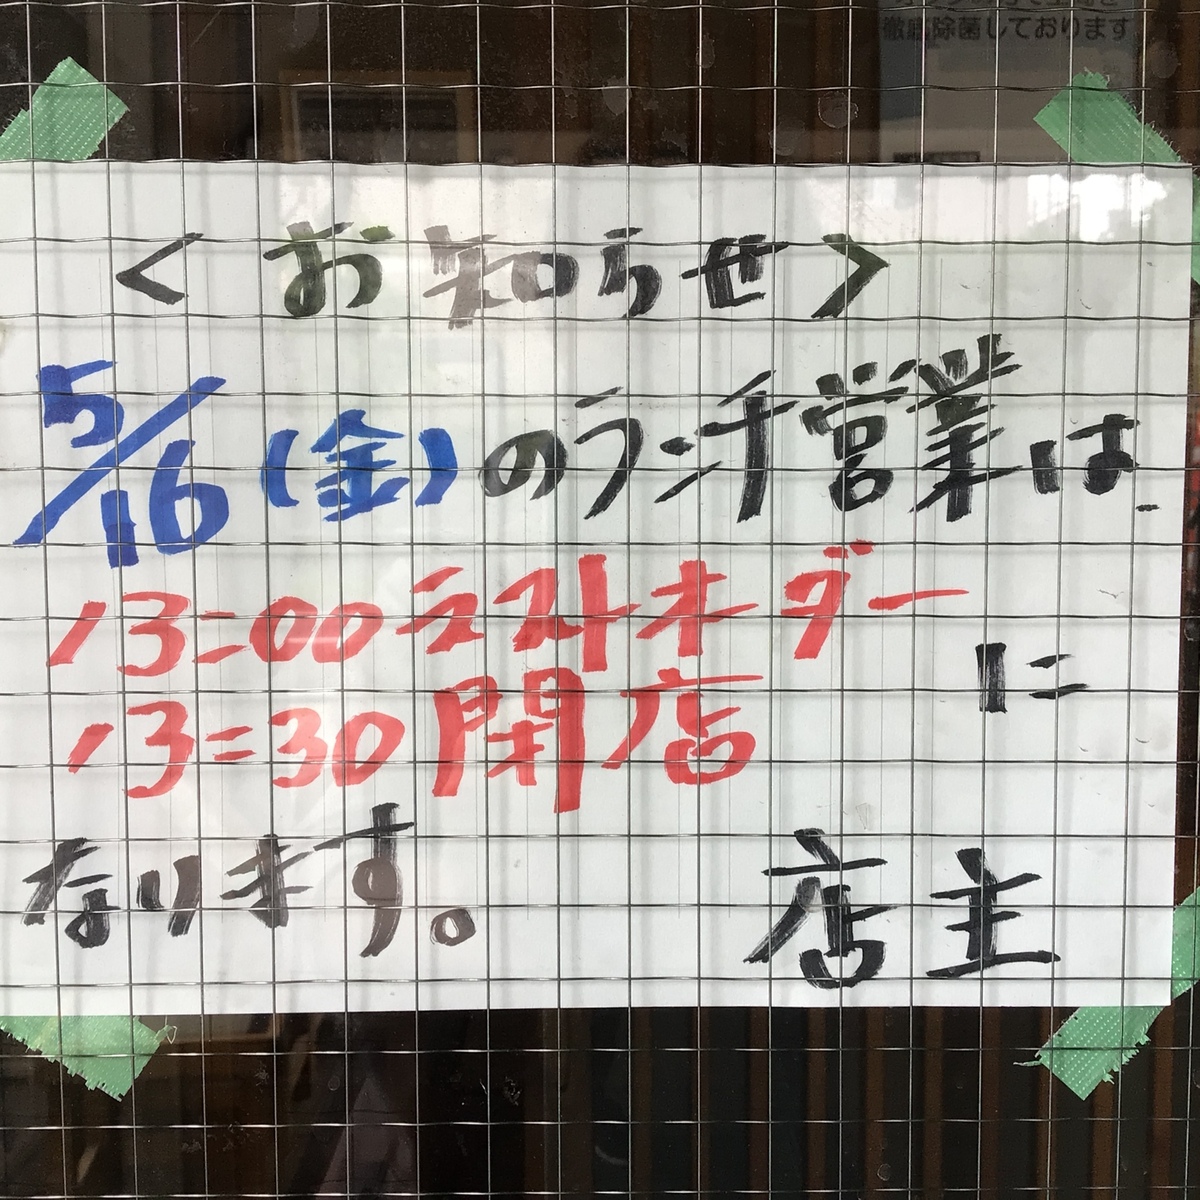 徹底除菌しております
<お知らせ>
5/16(金)のランチ営業は、
13:00ラストオーダー
に
13:30閉店
なります。 店主